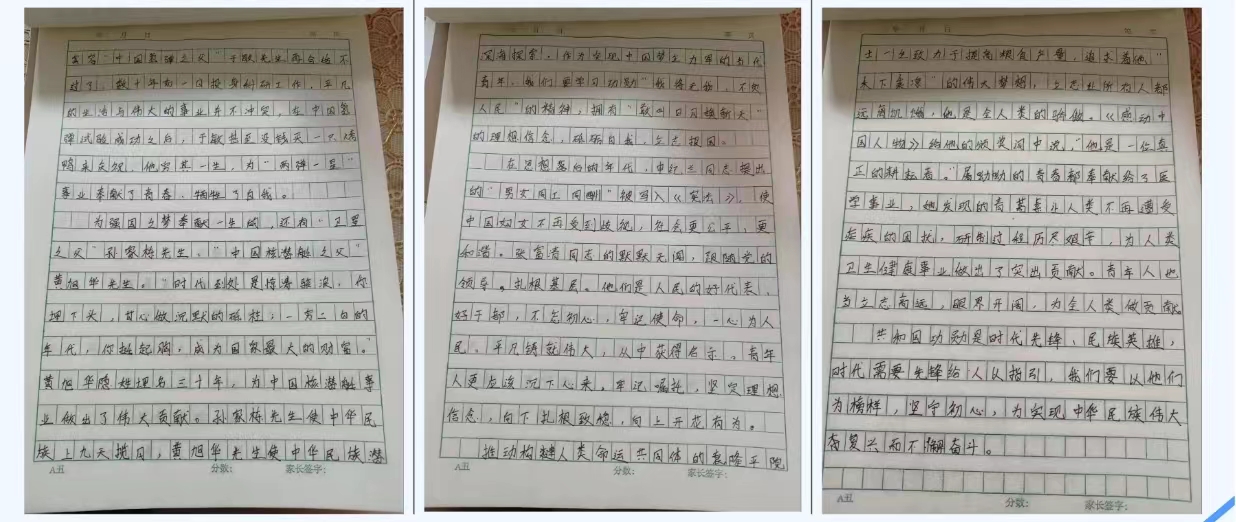 年 月 日 第 页
国氢弹之父"于敏先生再合适不
过了，数十年如一日投身科研工作，平凡
的生活与伟大的事业并不冲突，在中国氢
弹试验成功之后，于敏甚至没钱买一只烤
鸭来庆祝，他穷其一生，为"两弹一星"
事业奉献了青春，牺牲了自我。
为强国之梦奉献一生的，还有"卫星
之父"孙家栋先生，"中国核潜艇之父"
黄旭华先生。"时代到处是惊涛骇浪，你
埋下头，甘心做沉默的砥柱；一穷二白的
年代，你挺起胸，成为国家最大的财富。"
黄旭华隐姓埋名三十年，为中国核潜艇事
业做出了伟大贡献。孙家栋先生使中华民
族上九天揽月，黄旭华先生使中华民族潜
A丑 分数： 家长签字：
年 月 日 第 页
海探索，作为实现中国梦主力军的当代
青年，我们要学习功勋"我将无我，不负
人民"的精神，拥有"敢叫日月换新天"
的理想信念，砥砺自我，立志报国。
在思想落后的年代，申纪兰同志提出
的"男女同工同酬"被写入《宪法》，使
中国妇女不再受到歧视，社会更公平，更
和谐。张富清同志的默默无闻，跟随党的
领导。扎根基层。他们是人民的好代表、
好干部，不忘初心，牢记使命，一心为人
民。平凡铸就伟大，从中获得启示，青年
人更应该沉下心来。牢记嘱托，坚定理想
信念，向下扎根致稳，向上开花有为。
推动构建人类命运共同体的袁隆平院
A丑 分数： 家长签字：
年 月 日 第 页
士一生致力于提高粮食产量，追求着他"
禾下乘凉"的伟大梦想，立志让所有人都
远离饥饿，他是全人类的骄傲。《感动中
国人物》给他的颁奖词中说，"他是一位真
正的耕耘者。"屠呦呦的青春都奉献给了医
学事业，她发现的青蒿素让人类不再遭受
疟疾的困扰，研制过程历尽艰辛，为人类
卫生健康事业做出了突出贡献。青年人也
当立志高远，眼界开阔，为全人类做贡献。
共和国功勋是时代先锋、民族英雄，
时代需要先锋给人以指引，我们要以他们
为榜样，坚守初心，为实现中华民族伟大
复兴而不懈奋斗。
A丑 分数： 家长签字：